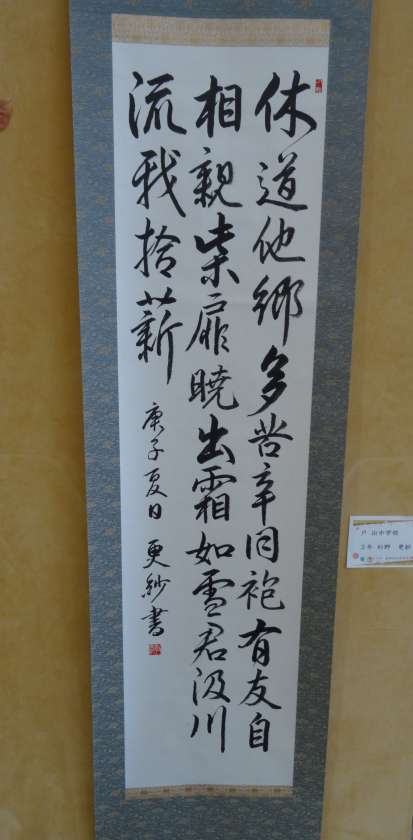 休道他郷多苦辛同袍有友自
相親柴扉暁出霜如雪君汲川
流我拾薪
庚子夏日 更紗書
戸山中学校